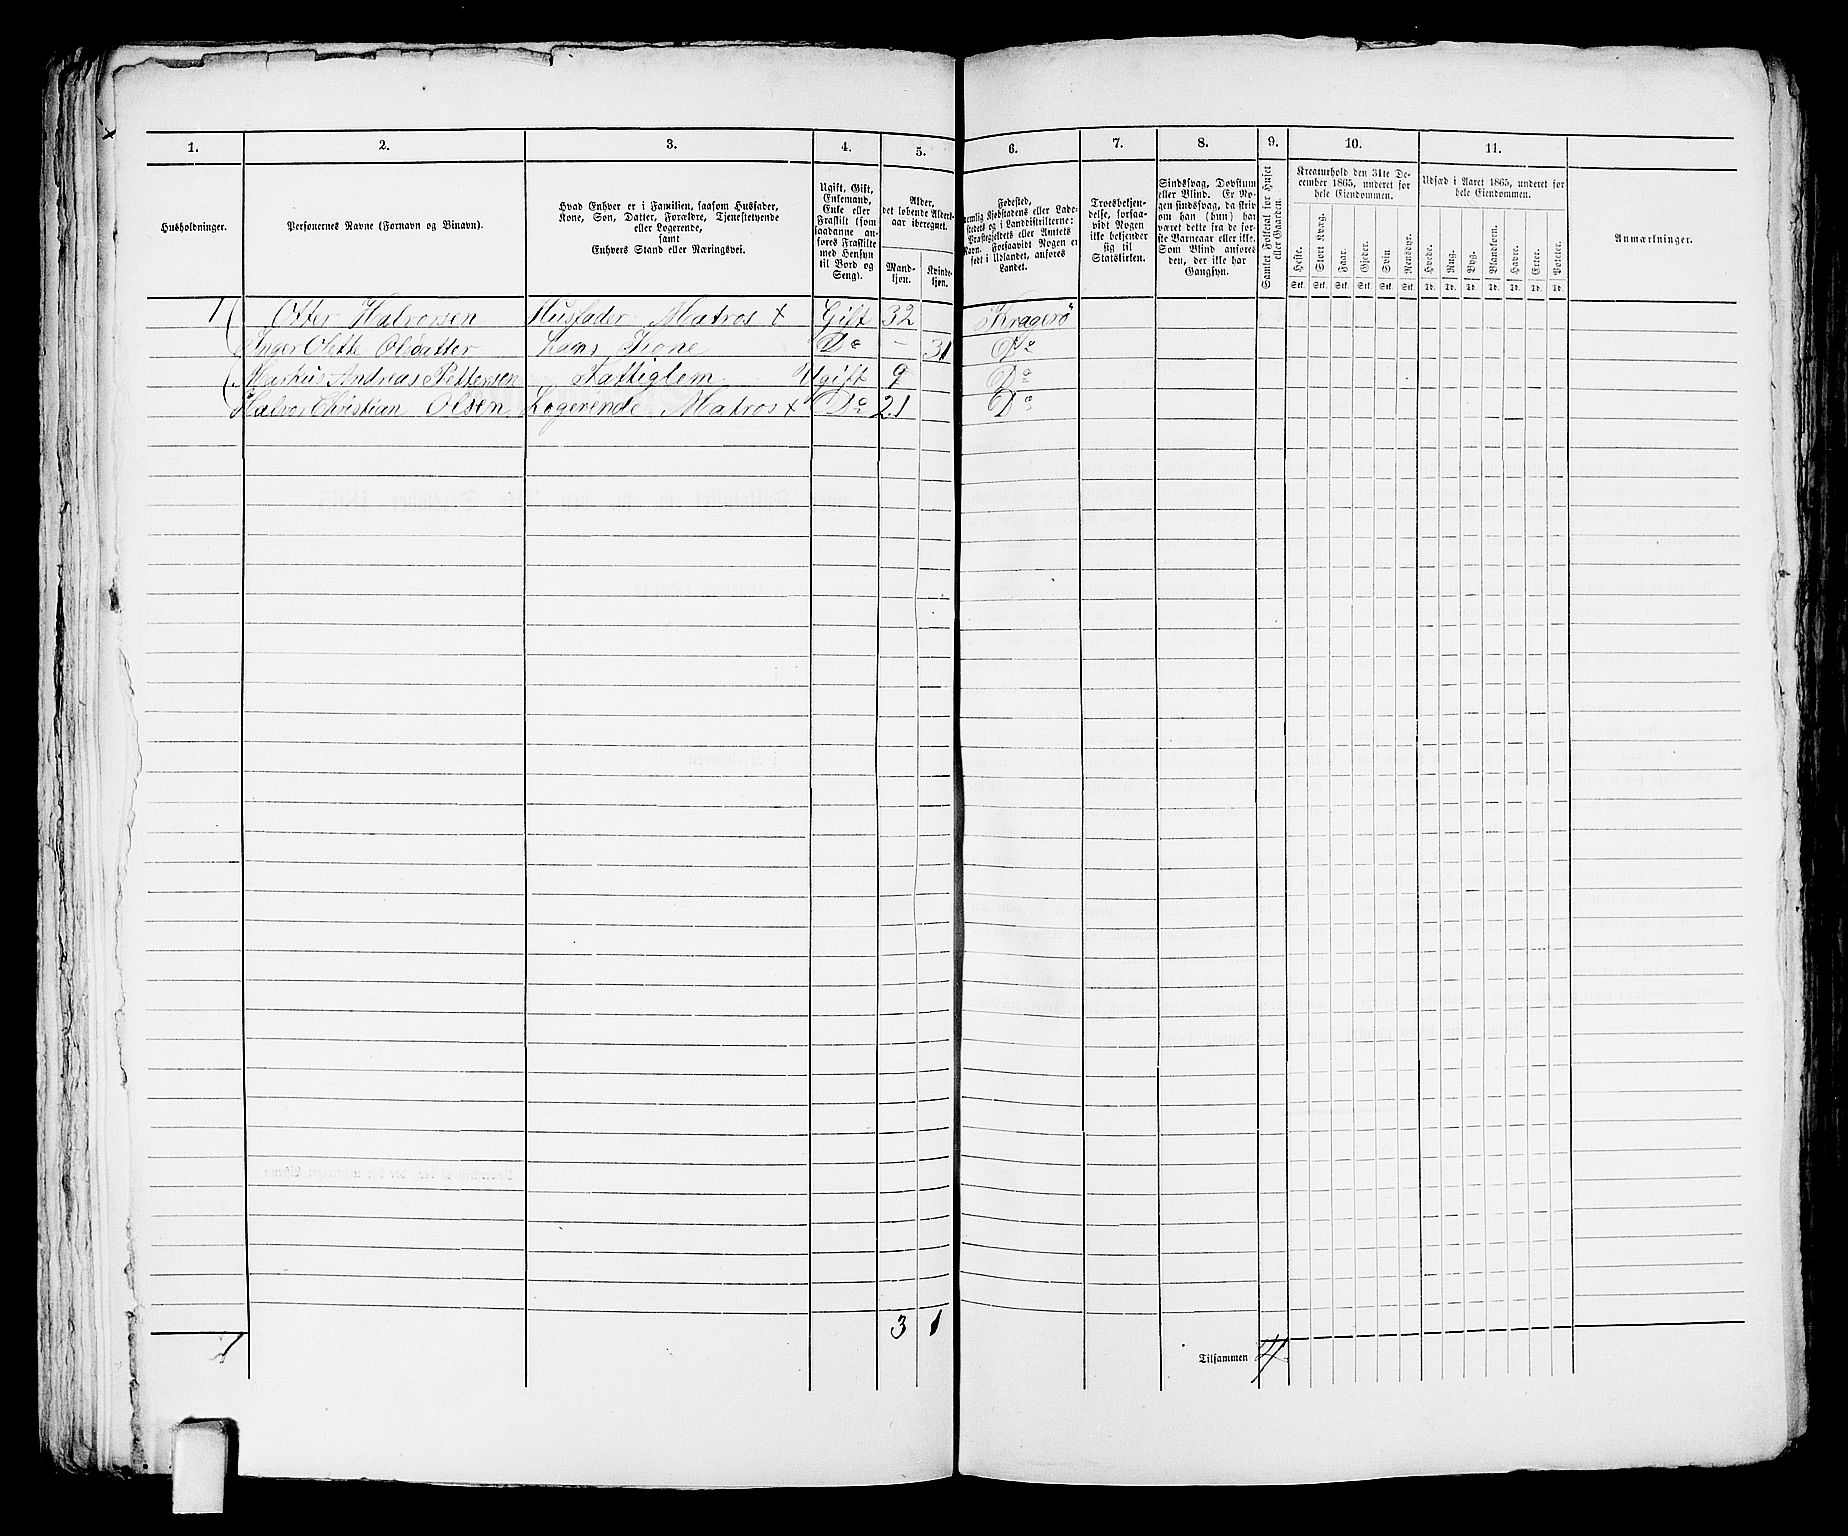 1. 2. 3. 4. 5. 6. 7. 8. 9. 10. 11.
Husholdninger.
Personernes Navne (Fornavn og Binavn).
Hvad Enhver er i Familien, saasom Husfader,
Kone, Søn, Datter, Forældre, Tjenestetyende
eller Logerende,
samt
Enhvers Stand eller Næringsvei.
Ugift, Gift,
Enkemand,
Enke eller
Fraskilt (som
saadanne an-
føres Fraskilte
med Hensyn
til Bord og
Seng).
Alder,
det løbende Alders-
aar iberegnet.
Mand-
kjøn.
Kvinde-
kjøn.
Fødested,
nemlig Kjøbstadens eller Lade-
stedets og i Landdistrikterne:
Præstegjeldets eller Amtets
Navn. Forsaavidt Nogen er
født i Udlandet, anføres
Landet.
Troesbekjen-
delse, forsaa-
vidt Nogen
ikke bekjender
sig til
Statskirken.
Sindssvag, Døvstum
eller Blind. Er No-
gen sindssvag, da skriv
om han (hun) har
været dette fra de før-
ste Barneaar eller ikke.
Som Blind anføres
den, der ikke har
Gangsyn.
Samlet Folketal for Huset
eller Gaarden.
Kreaturhold den 31te De-
cember 1865, underet for
hele Eiendommen.
Heste. Stort Kvæg. Faar. Gjeder. Svin Rensdyr.
Stk. Stk. Stk. Stk. Stk. Stk.
Udsæd i Aaret 1865, underet for
hele Eiendommen.
Hvede. Rug. Byg. Blandkorn. Havre. Erter. Poteter.
Td. Td. Td. Td. Td. Td. Td.
Anmærkninger.
1 Otter Halvorsen Husfader Matros + Gift 32 Kragerö
Inger Olette Olsdatter hans Kone Do - 31 Do
Markus Andreas Pettersen Fattiglem Ugift 9 Do
Halvor Christian Olsen Logerende Matros + Do 21 Do
3 1
1
Tilsammen 4